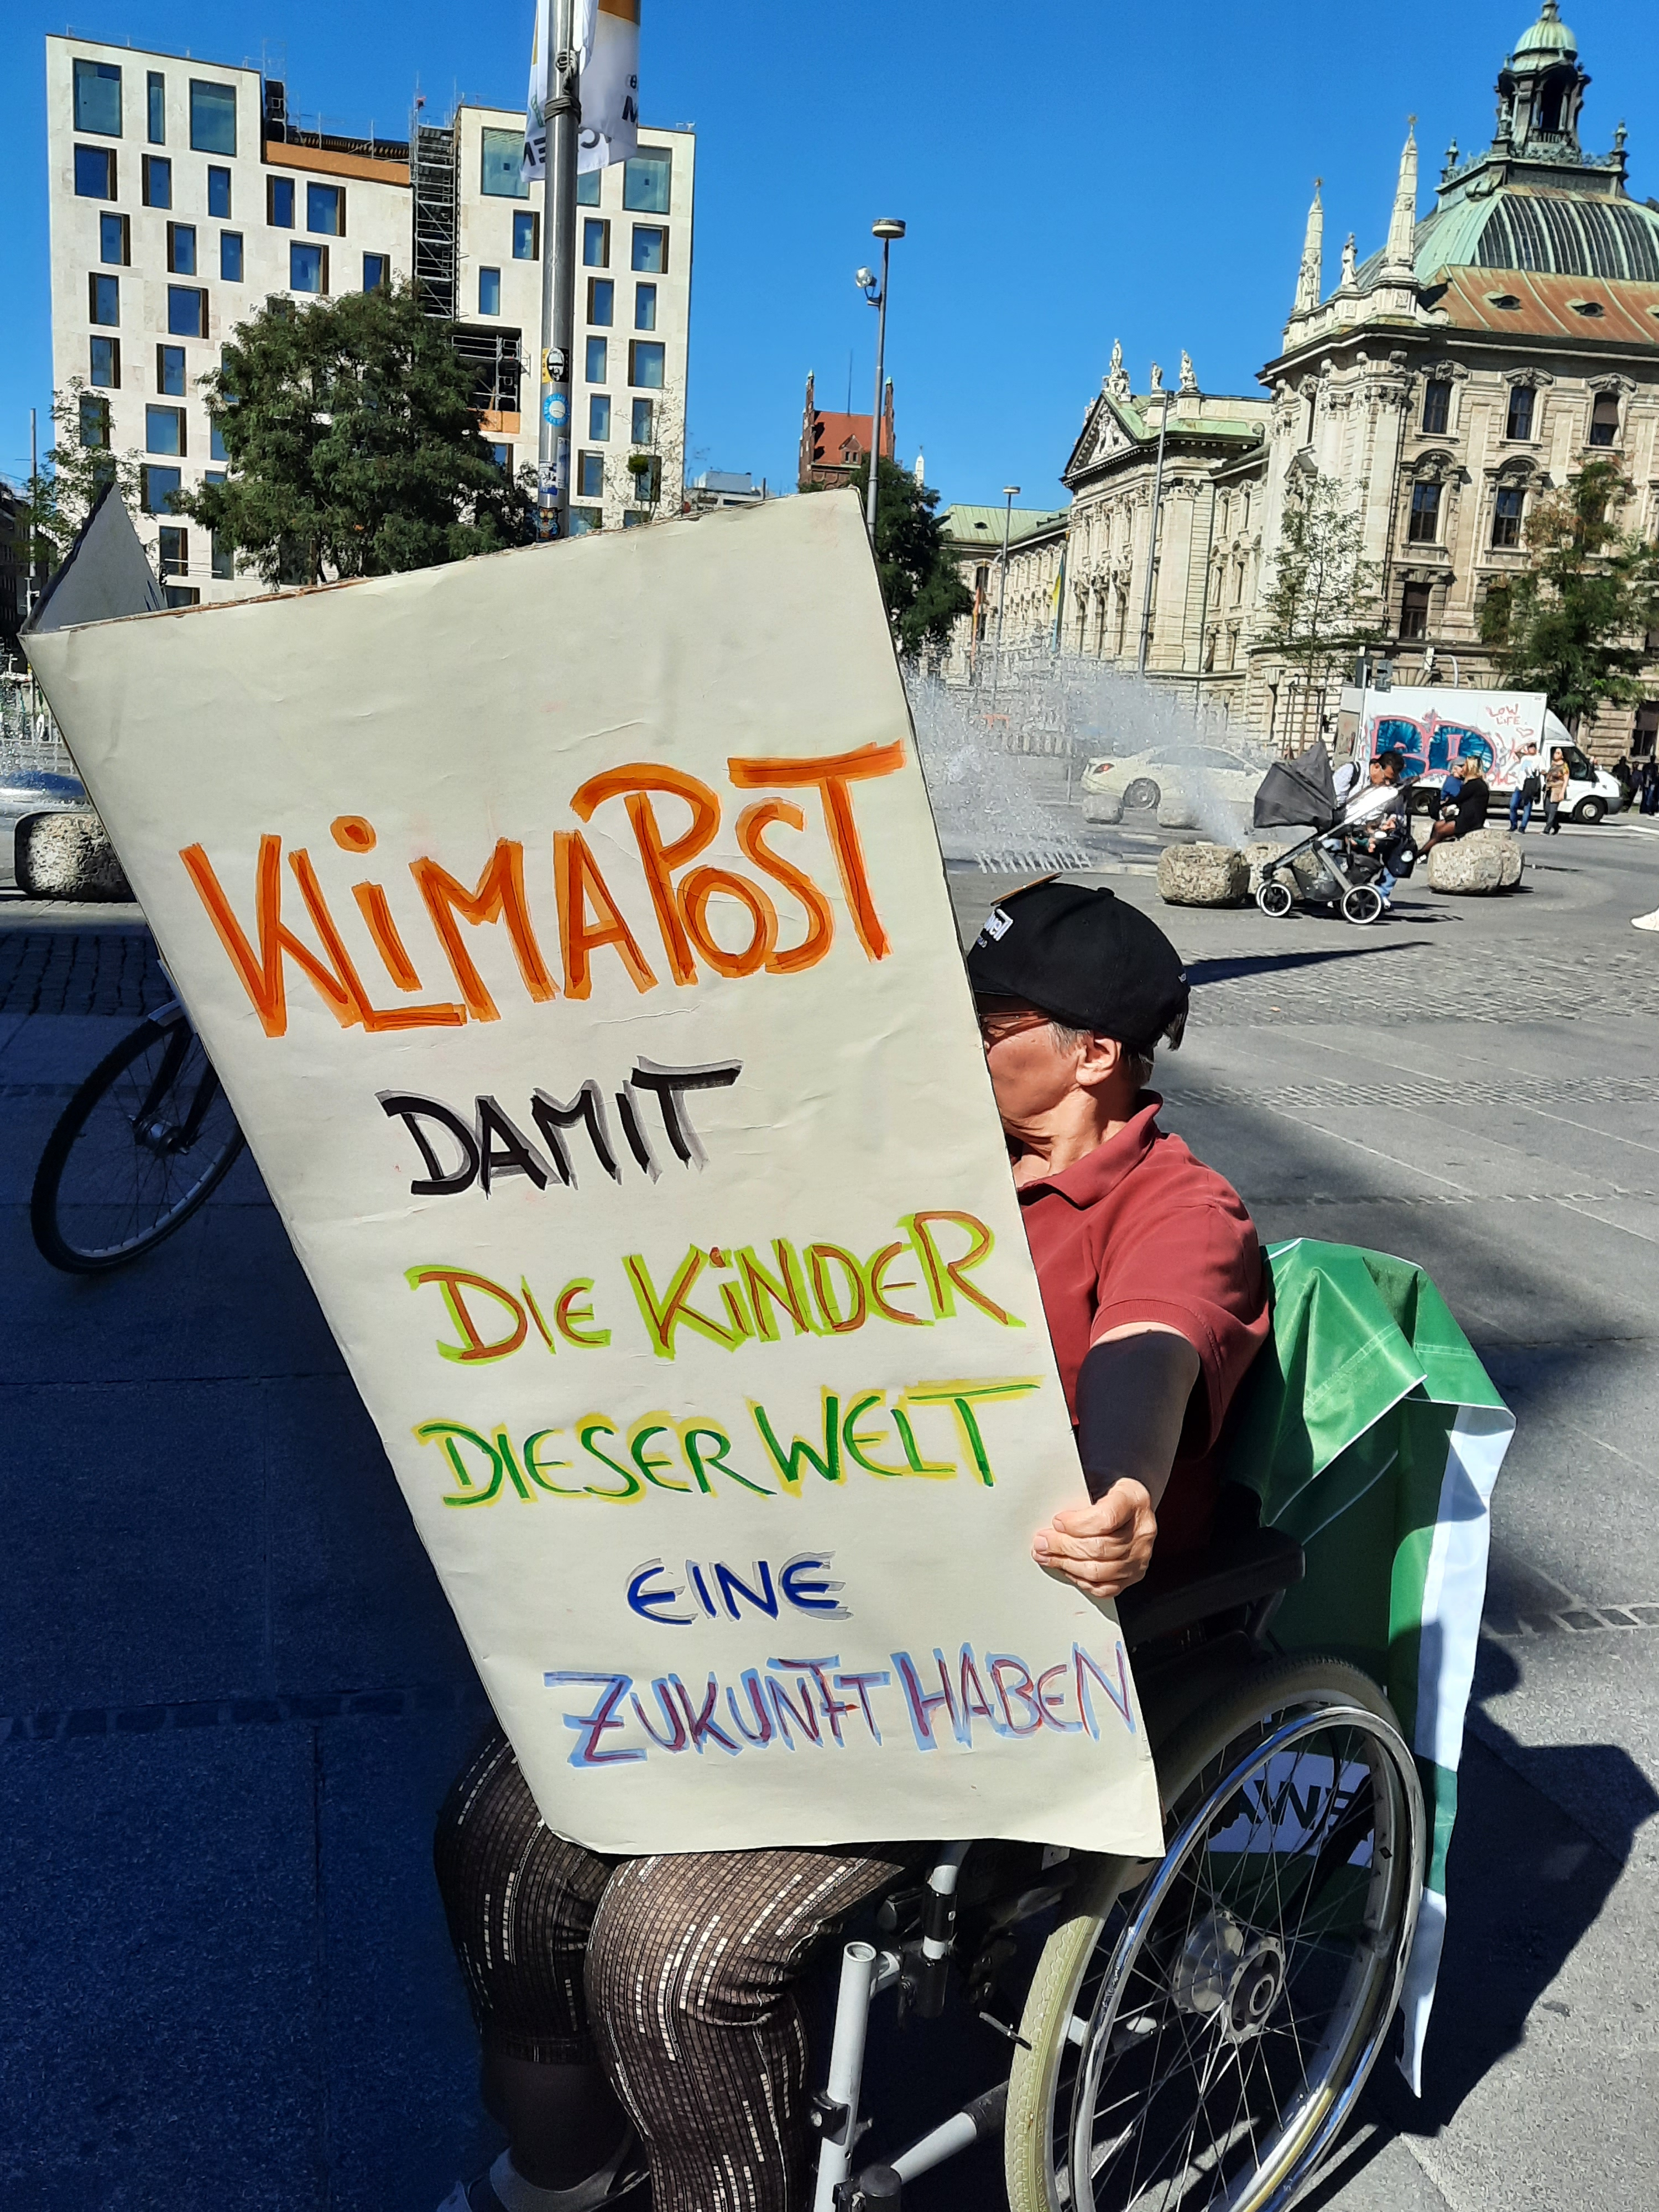 KLIMAPOST
DAMIT
DIE KINDER
DIESER WELT
EINE
ZUKUNFT HABEN
LOW
LIFE